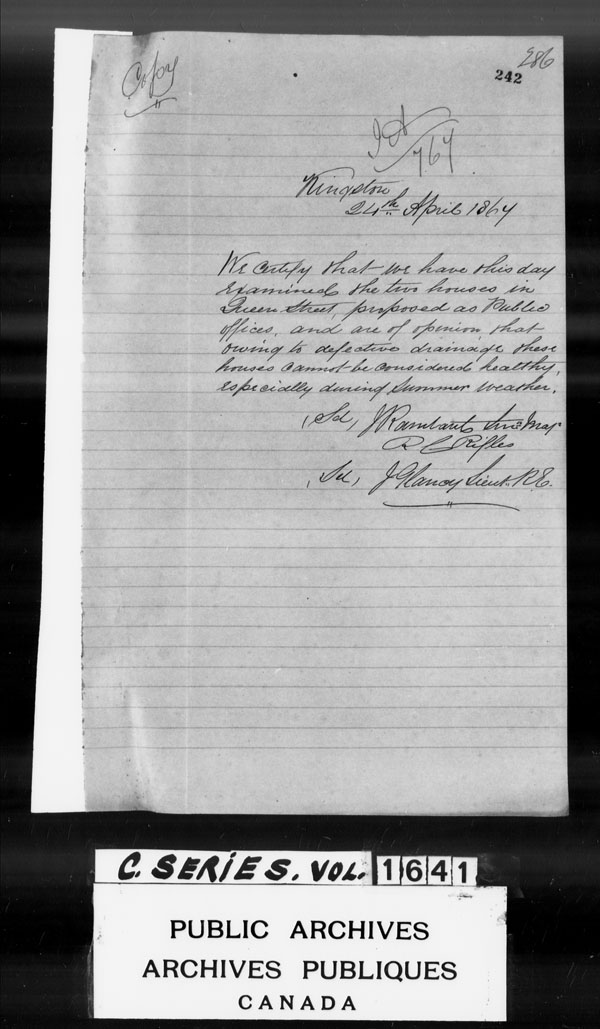 Copy
286
242
767
Kingston
24th April 1867
We certify that we have this day
examined the two houses in
Queen Street, proposed as Public
offices, and are of opinion that
owing to defective drainage these
houses cannot be considered healthy,
especially during Summer weather.
(Sd) J Rambaut Surg Maj
R C Rifles
(Sd) J Glancy Lieut. R.E.
C. SERIES. VOL. 1641
PUBLIC ARCHIVES
ARCHIVES PUBLIQUES
CANADA